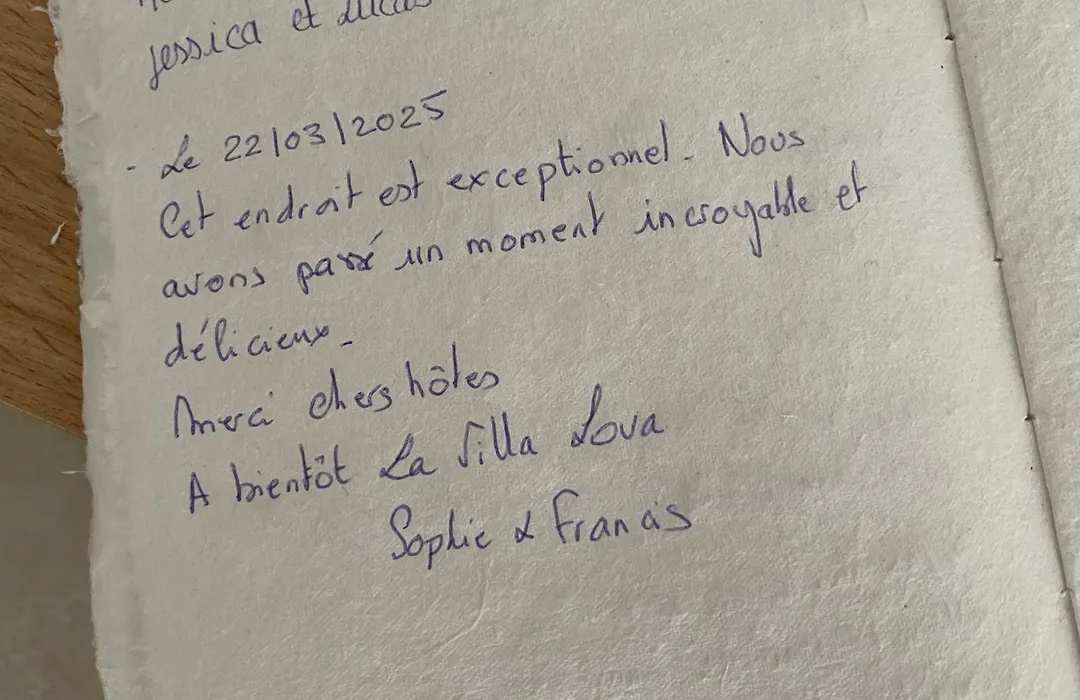 Jessica et Lucas
- Le 22/03/2025
Cet endroit est exceptionnel. Nous
avons passé un moment incroyable et
délicieux.
Merci chers hôtes
A bientôt La Villa Lova
Sophie & Francis